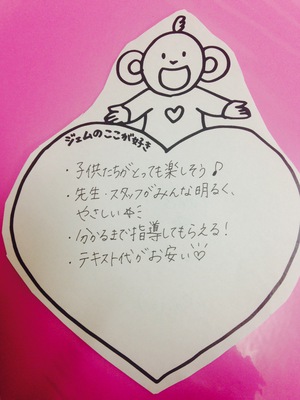 ジェムのここが好き
・子供たちがとっても楽しそう♪
・先生・スタッフがみんな明るく、
やさしい
・分かるまで指導してもらえる!
・テキスト代がお安い♡